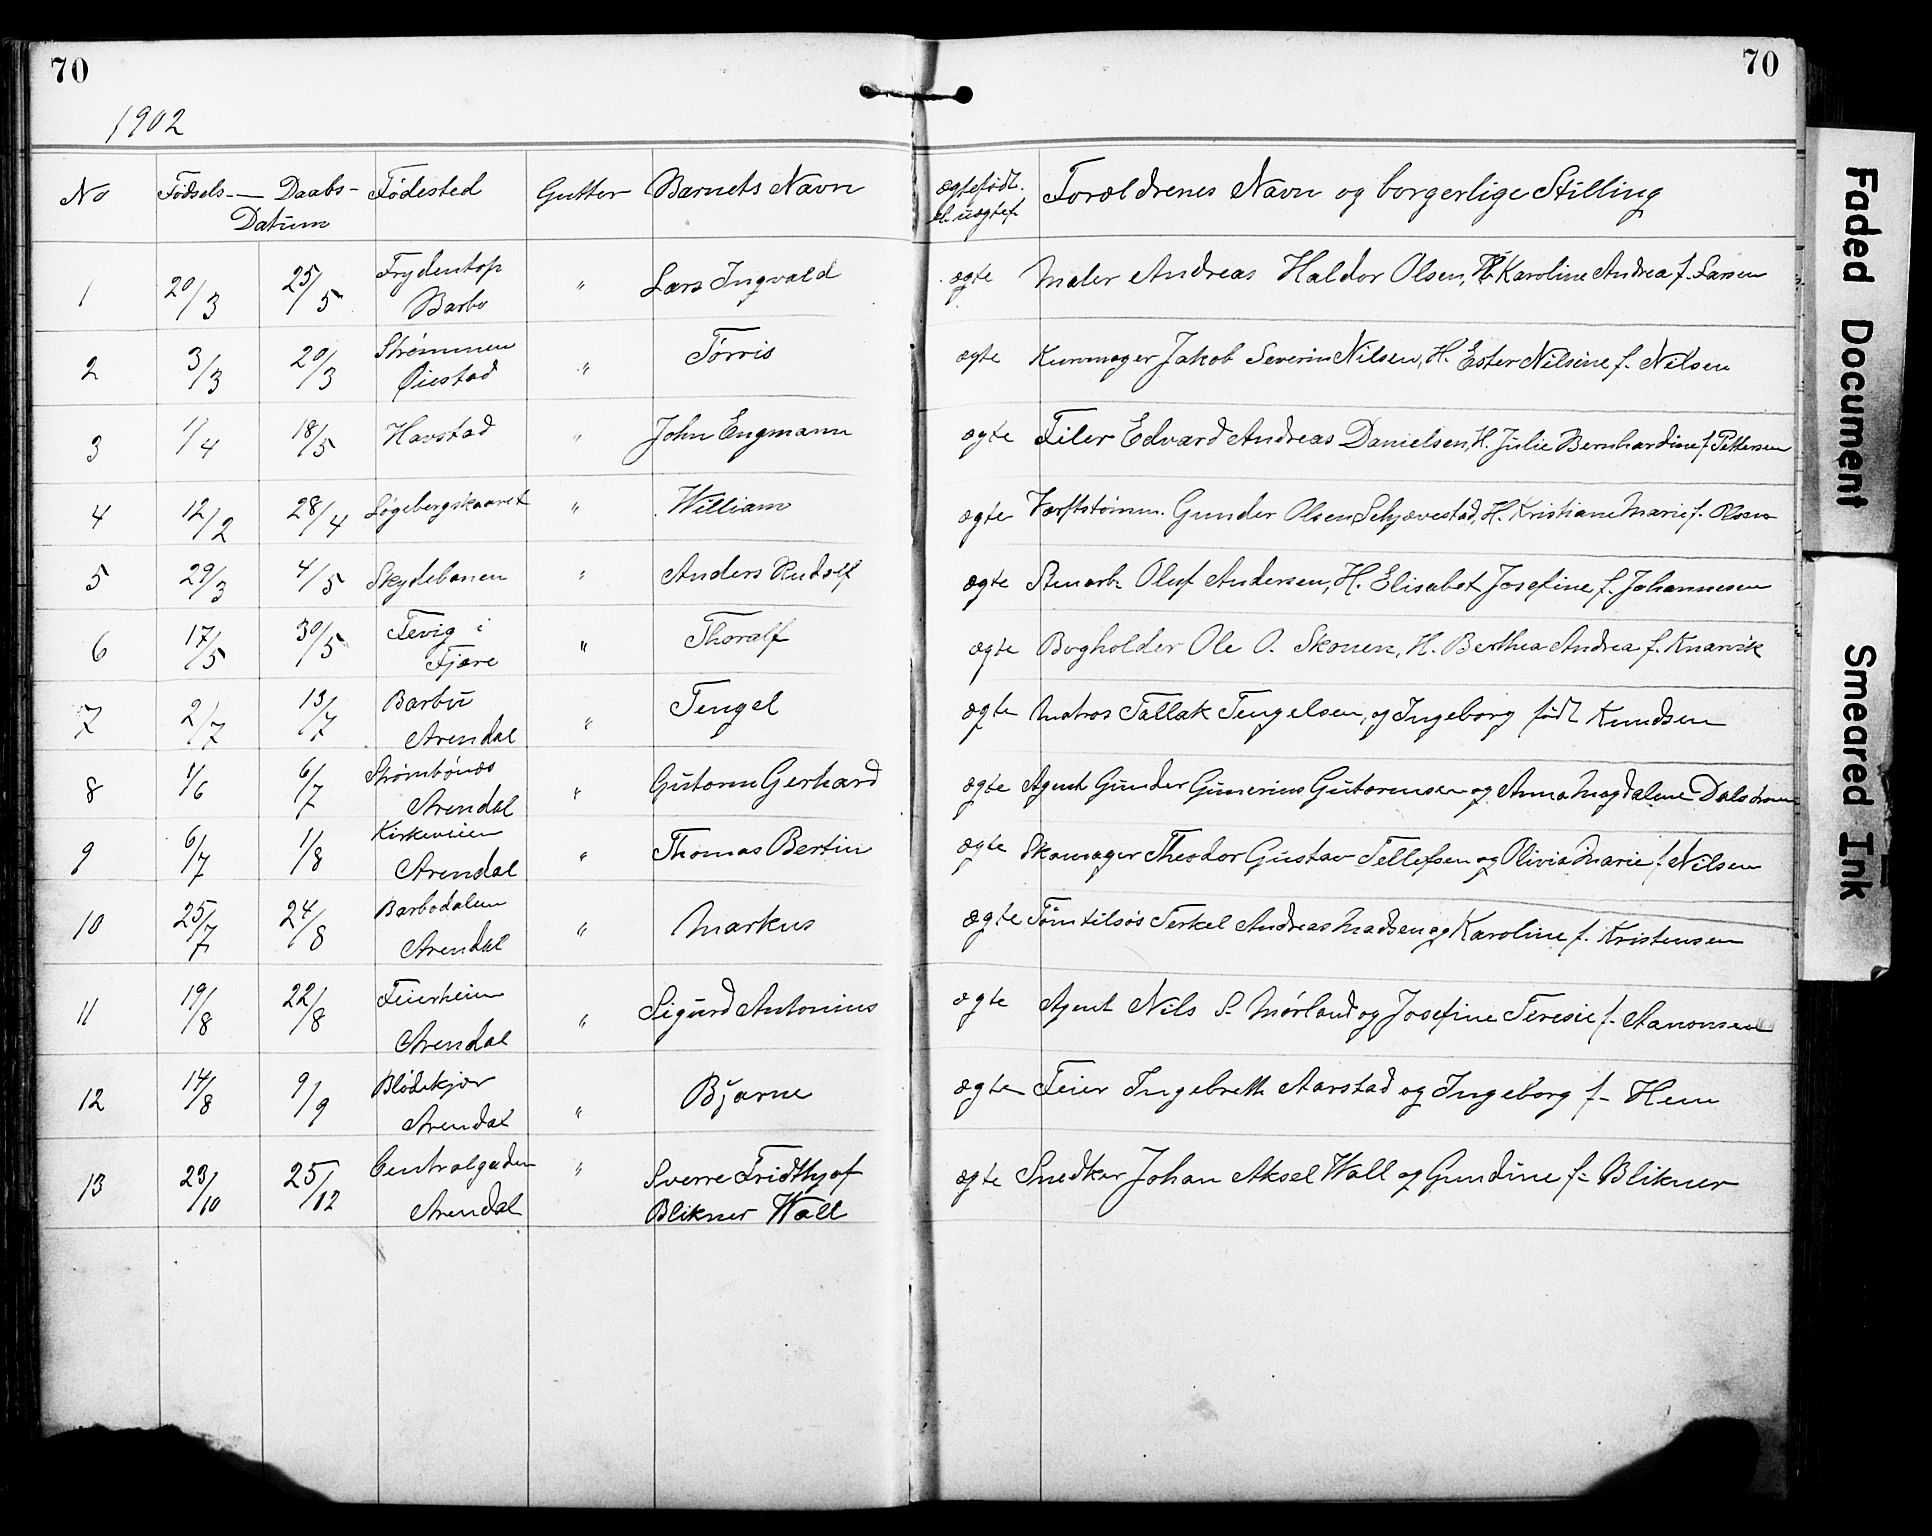 70 70
1902
No Fødsels- Daabs- Datum Fødested Gutter Barnets Navn ægtefødt el. uægtef. Forældrenes Navn og borgerlige Stilling
1 20/3 25/5 Frydentop Barbo " Lars Ingvald ægte Maler Andreas Haldor Olsen, H. Karoline Andrea f. Larsen
2 3/3 20/3 Strømmen Øiestad " Tørris ægte Kurvmager Jakob Severin Nilsen, H. Ester Nilsine f. Nilsen
3 1/4 18/5 Havstad " John Engmann ægte Filer Edvard Andreas Danielsen, H. Julie Bernhardine f. Pettersen
4 12/2 28/4 Løgebergskaaret " William ægte Værftstømm. Gunder Olsen Schjævestad, H. Kristiane Marie f. Olsen
5 29/3 4/5 Skydebanen " Anders Rudolf ægte Stenarb. Oluf Andersen, H. Elisabet Josefine f. Johannesen
6 17/5 30/5 Fevig i Fjære " Thoralf ægte Bogholder Ole O. Skouen, H. Berthea Andrea f. Knarvik
7 2/7 13/7 Barbu Arendal " Tengel ægte Matros Tallak Tengelsen, og Ingeborg født Knudsen
8 1/6 6/7 Strømbønæs Arendal " Gutorm Gerhard ægte Agent Gunder Gunerius Gutormsen og Anna Magdalene
9 6/7 1/8 Kirkeveien Arendal " Thomas Bertin ægte Skomager Theodor Gustav Tellefsen og Olivia Marie f. Nilsen
10 25/7 24/8 Barbodalen Arendal " Markus ægte Terkel Andreas Madsen og Karoline f. Kristensen
11 19/8 22/8 Feierheien Arendal " Sigurd Antonius ægte Agent Nils S. Mørland og Josefine Teresie f. Aanonsen
12 14/8 9/9 Blødekjær Arendal " Bjarne ægte Feier Ingebreth Aarstad og Ingeborg f. Hem
13 23/10 25/12 Centralgaden Arendal " Sverre Fridthjof Blikner Wall ægte Snedker Johan Aksel Wall og Gundine f. Blikner
Faded Document
Smeared Ink